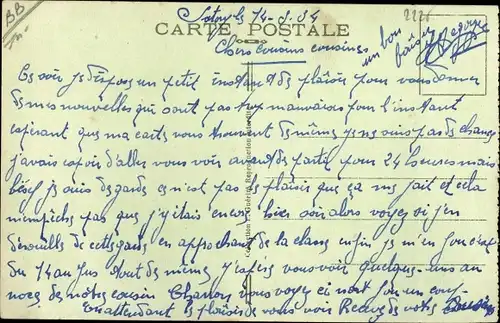 BB
Satory le 14-8-34
2226
CARTE POSTALE
Chers cousins cousines
un bon
baiser
Ce soir je dispose un petit instant de plaisir pour vous donner
de mes nouvelles qui sont pas trop mauvaises pour l'instant
espérant que ma carte vous trouvent de même je ne suis pas de chance
j'avais espoir d'aller vous voir avant de partir pour 24 heures mais
je suis de garde ce n'est pas le plaisir que ça me fait et cela
n'empêche pas que j'y étais encore hier soir alors voyez si j'en
de cette garde en approchant de la classe enfin je m'en
du 14 au jus tout de même j'espère vous voir quelques uns au
noces de notre cousin vous voyez ci
En attendant le plaisir de vous voir Recevez de votre Cousin